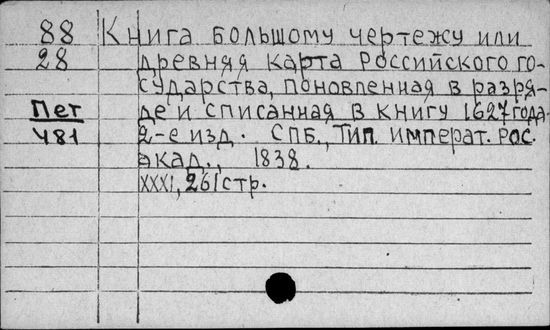 88 Книга большому чертежу или
28 древняя карта Российского го-
сударства, поновленная в разря-
Пет де и списанная в книгу 1627 года.
481 2-е изд. СПб., Тип. императ. Рос.
акад., 1838.
XXXI, 261 стр.